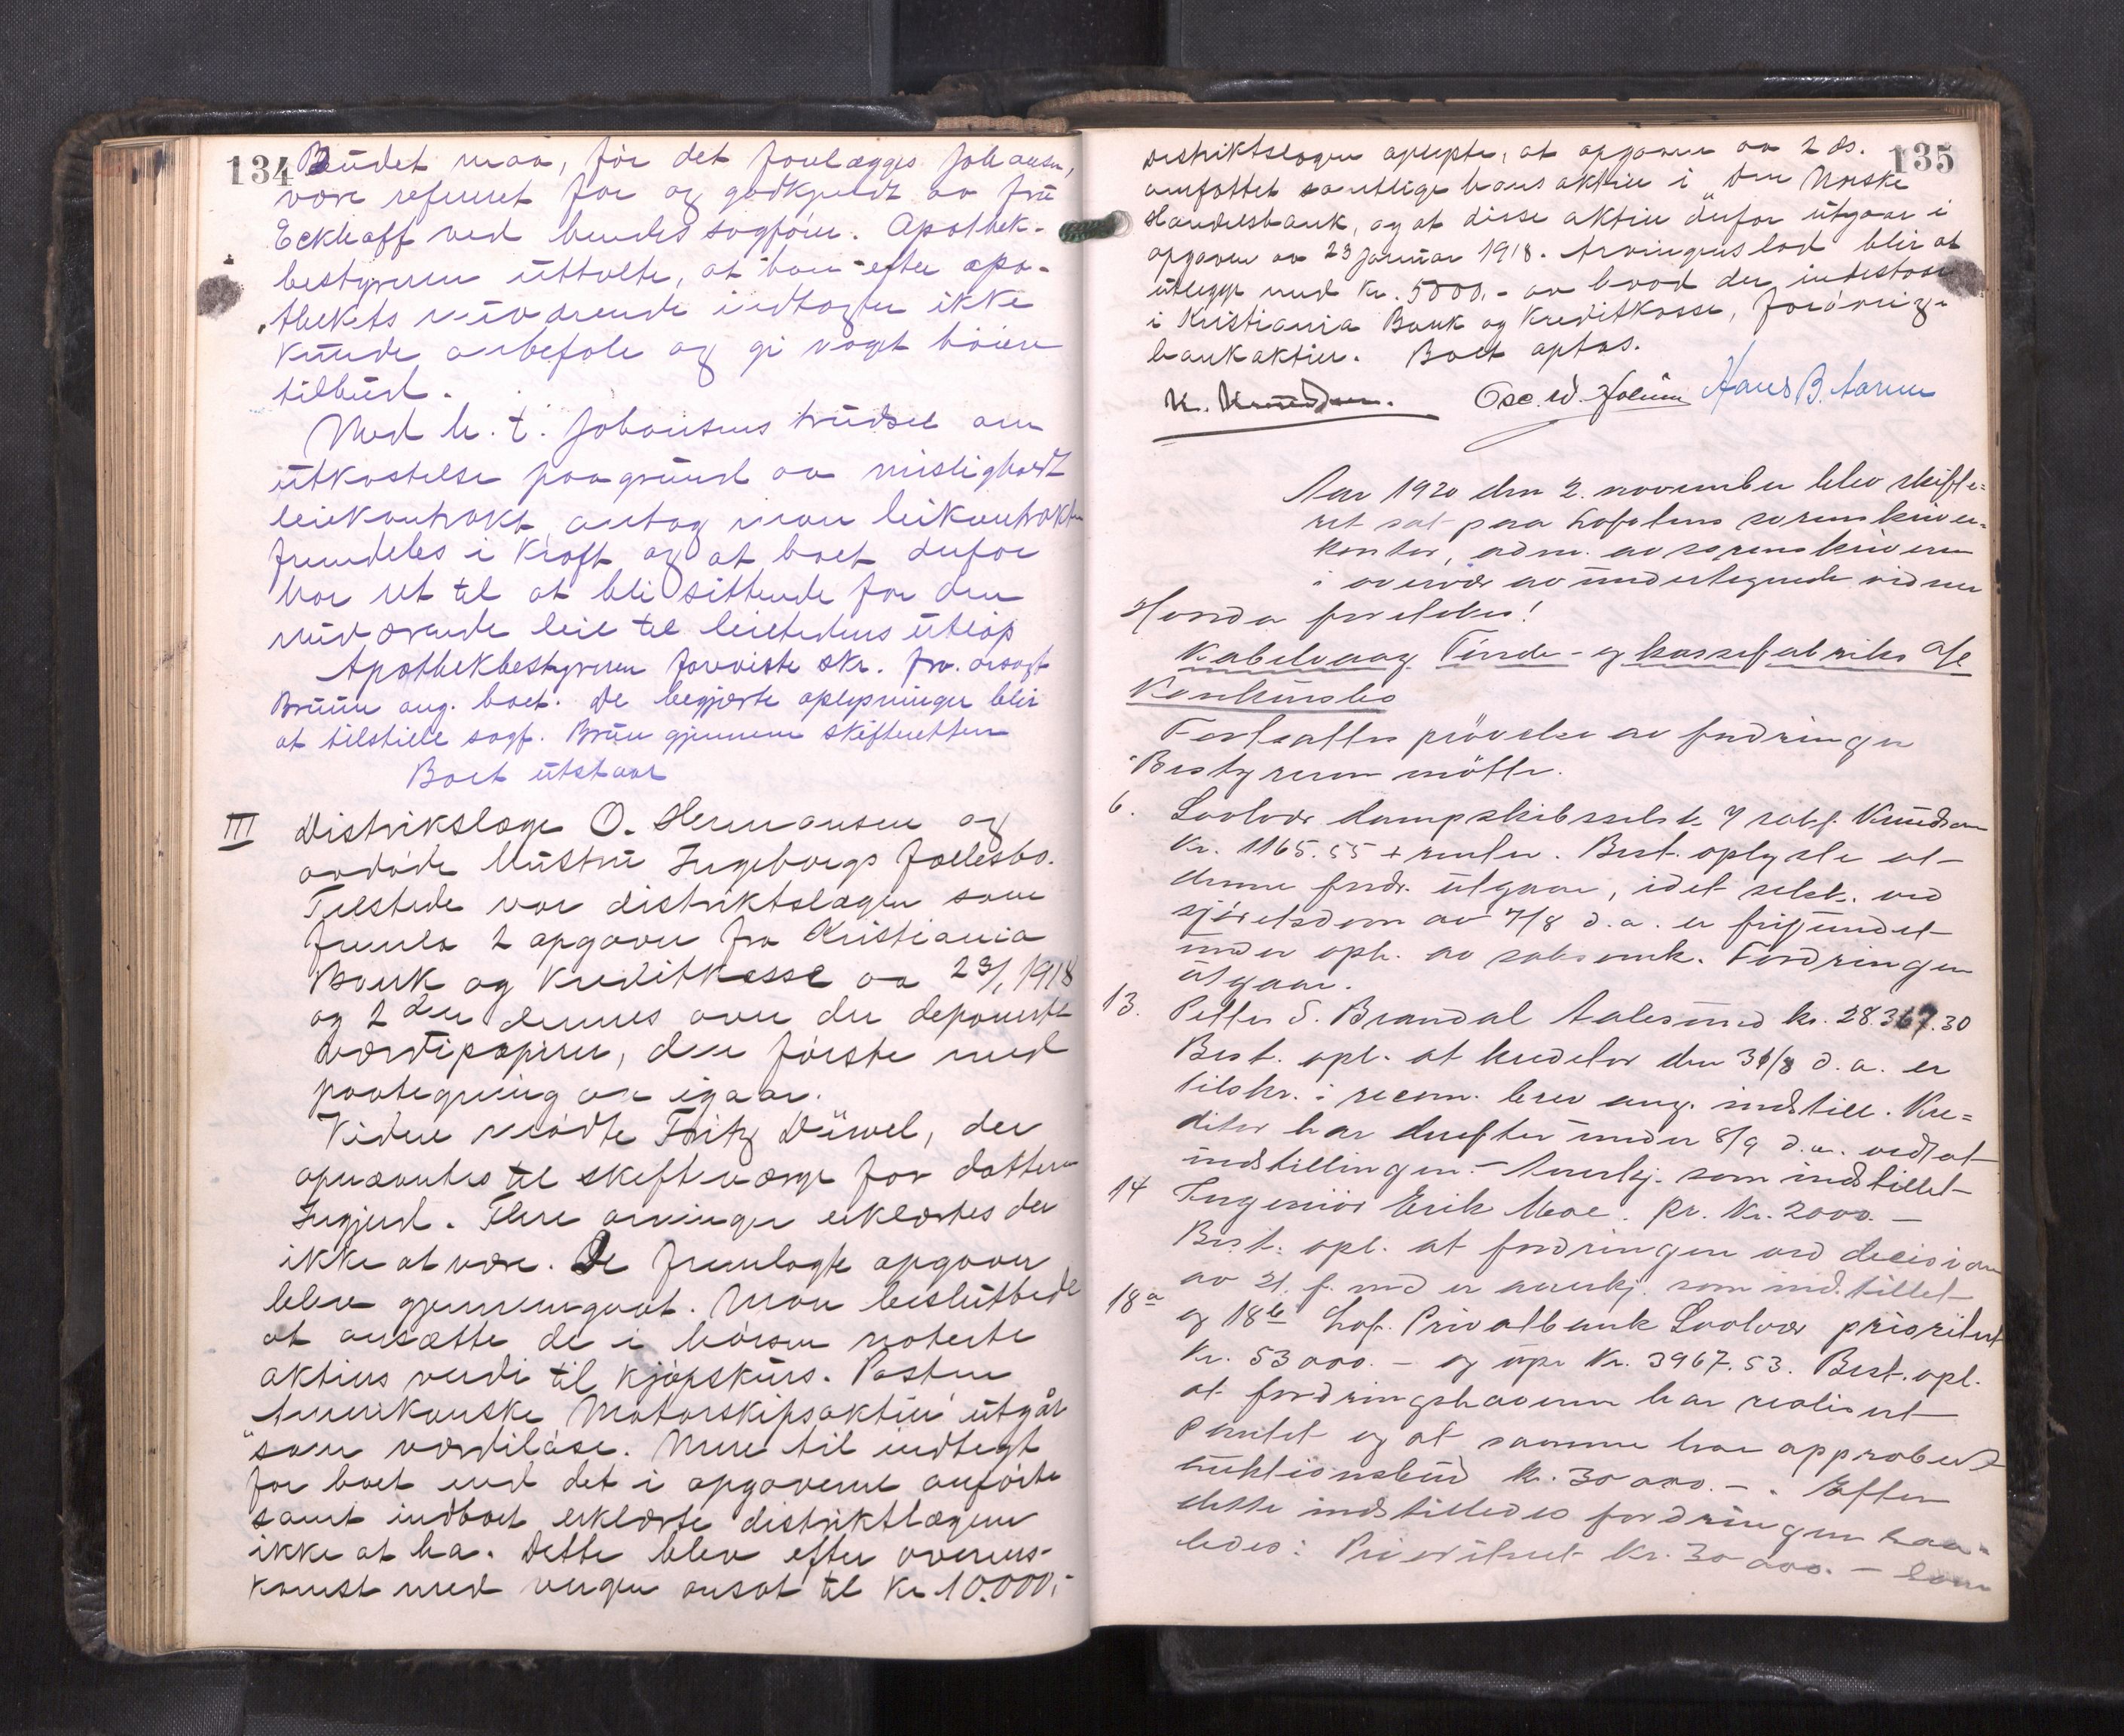 134
Budet maa, før det forelægges Johansen,
være referert for og godkjendt av fru
Eckhoff ved hendes sagfører. Apothek-
bestyreren uttalte, at han efter apo-
thekets nuværende indtægter ikke
kunde anbefale og gi noget høiere
tilbud.
Med h. t. Johansens trudsel om
utkastelse paa grund av misligholdt
leiekontrakt, antog man leikontrakten
fremdeles i kraft og at boet derfor
har ret til at bli sittende for den
nuværende leie til leietidens utløp
Apothekbestyreren foreviste skr. fra o.r.sagf.
Bruun ang. boet. De begjærte oplysninger blir
at tilstille sagf. Bruun gjennem skifteretten
Boet utstaar
III Distrikslæge O. Hermansen og
avdøde hustru Ingeborgs fællesbo.
Tilstede var distriktslægen som
fremla 2 opgaver fra Kristiania
Bank og Kreditkasse av 23/1 1918
og 2den dennes over der deponerte
værdipapirer, den første med
paategning av igaar.
Videre mødte Fritz Düwel, der
opnævntes til skifteværge for datteren
Ingjerd. Flere arvinger erklærtes der
ikke at være. De fremlagte opgaver
blev gjennemgaat. Man besluttede
at ansætte de i børsen noterte
aktiers verdi til kjøpskurs. Posten
"Amerikanske Motorskipsaktier" utgår
som værdiløse. Mere til indtegt
for boet end det i opgaverne anførte
samt indboet erklærte distriktlægen
ikke at ha. Dette blev efter overens-
komst med vergen ansat til kr 10.000,-
135
Distriktslægen oplyste, at opgaven av 2 ds.
omfattet samtlige hans aktier i "Den Norske
Handelsbank, og at disse aktier derfor utgaar i
opgaven av 23 januar 1918. Arvingens lod blir at
utlegge med kr. 5000,- av hvad der indestaar
i Kristiania Bank og Kreditkasse, forøvrig i
bankaktier. Boet optas.
K. Knudsen. Osc. W. Holm Hans B. Aarnes
Aar 1920 den 2. november blev skifte-
ret sat paa Lofotens sorenskriver-
kontor, adm. av sorenskriveren
i overvær av undertegnede vidner
Hvorda foretokes!
Kabelvaag Tønde- og kassefabriks A/S
Konkursbo
Fortsattes prøvelse av fordringer
Bestyreren møtte.
6. Svolvær dampskibsselsk. v/ sakf. Knudsen
Kr. 1165.55 + renter. Best. oplyste at
denne fordr. utgaar, idet selsk. ved
sjøretsdom av 7/8 d.a. er frifundet
under oph. av saksomk. Fordringen
utgaar.
13. Petter S. Brandal Aalesund kr. 28.367.30
Best. opl. at kreditor den 31/8 d.a. er
tilskr. i recom. brev ang. indstill. Kre-
ditor har derefter under 8/9 d.a. vedtat
indstillingen. - Anerkj. som indstillet
14 Ingeniør Erik Moe. Pr. Kr. 2000.-
Best. opl. at fordringen ved decision
av 21. f. md er anerkj. som indstillet
18a og 18b Lof. Privatbank Svolvær prioritert
Kr. 53000.- og upr Kr. 3967.53. Best. opl.
at fordringshaveren har realisert
Pantet og at samme har approbert
auktionsbud kr. 30000.-. Efter
dette indstilledes fordringen saa-
ledes: Prioritert Kr. 30000.- som